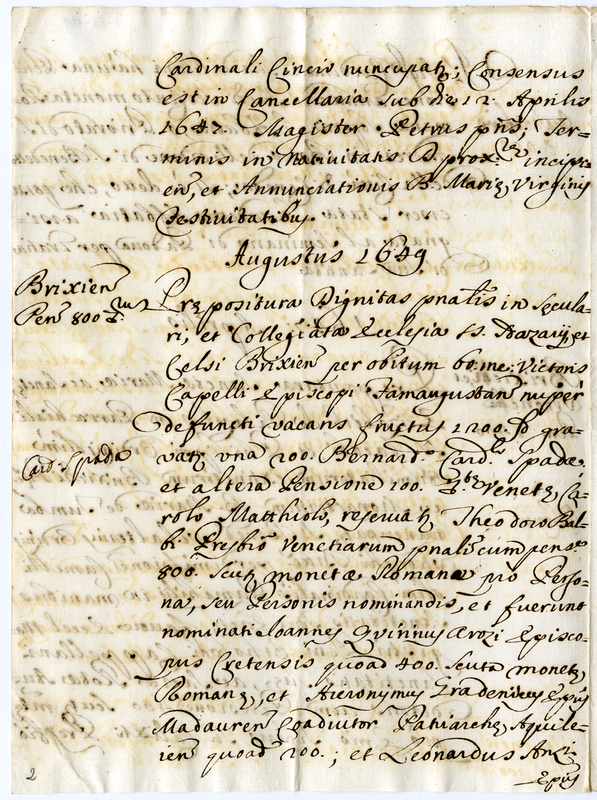 Cardinali Cincio nuncupatę; Consensus
est in Cancellaria sub die 12. Aprilis
1647. Magister Petrus pn̄s; Ter-
minis in Nativitatis D. prox. incipi-
en, et Annunciationis B. Marię Virginis
festivitatibus.
Augustus 1649
Brixien
Pen 800 
Prępositura Dignitas pnalis in Secula-
ri, et Collegiata Ecclesia SS. Nazarij, et
Celsi Brixien per obitum bo: me: Victoris
Capelli Episcopi Famaugustan nuper
defuncti vacans fructus 1200. gra-
Card. Spada
vatę una 200. Bernard.o Card.li Spadę
et altera Pensione 100. Venetę, Ca-
rolo Matthiolo, reservatę, Theodoro Bal-
bi Presbro Venetiarum pnali cum pens.e
800. scutę monetæ Romanæ pro Perso-
na, seu Personis nominandis, et fuerunt
nominati Ioannes Qvirinus Episco-
pus Cretensis quoad 400. scuta monetę
Romanę, et Hieronymus Gradenicus Ep̄us
Madauren Coadiutor Patriarchę Aquile-
ien quoad 200.; et Leonardus
Ep̄us
2